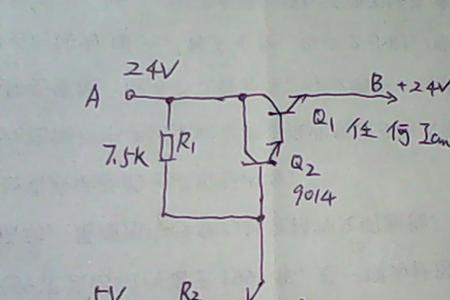 24V
A
B +24V
Q1 任何Icm
7.5K R1
Q2
9014
5V R2